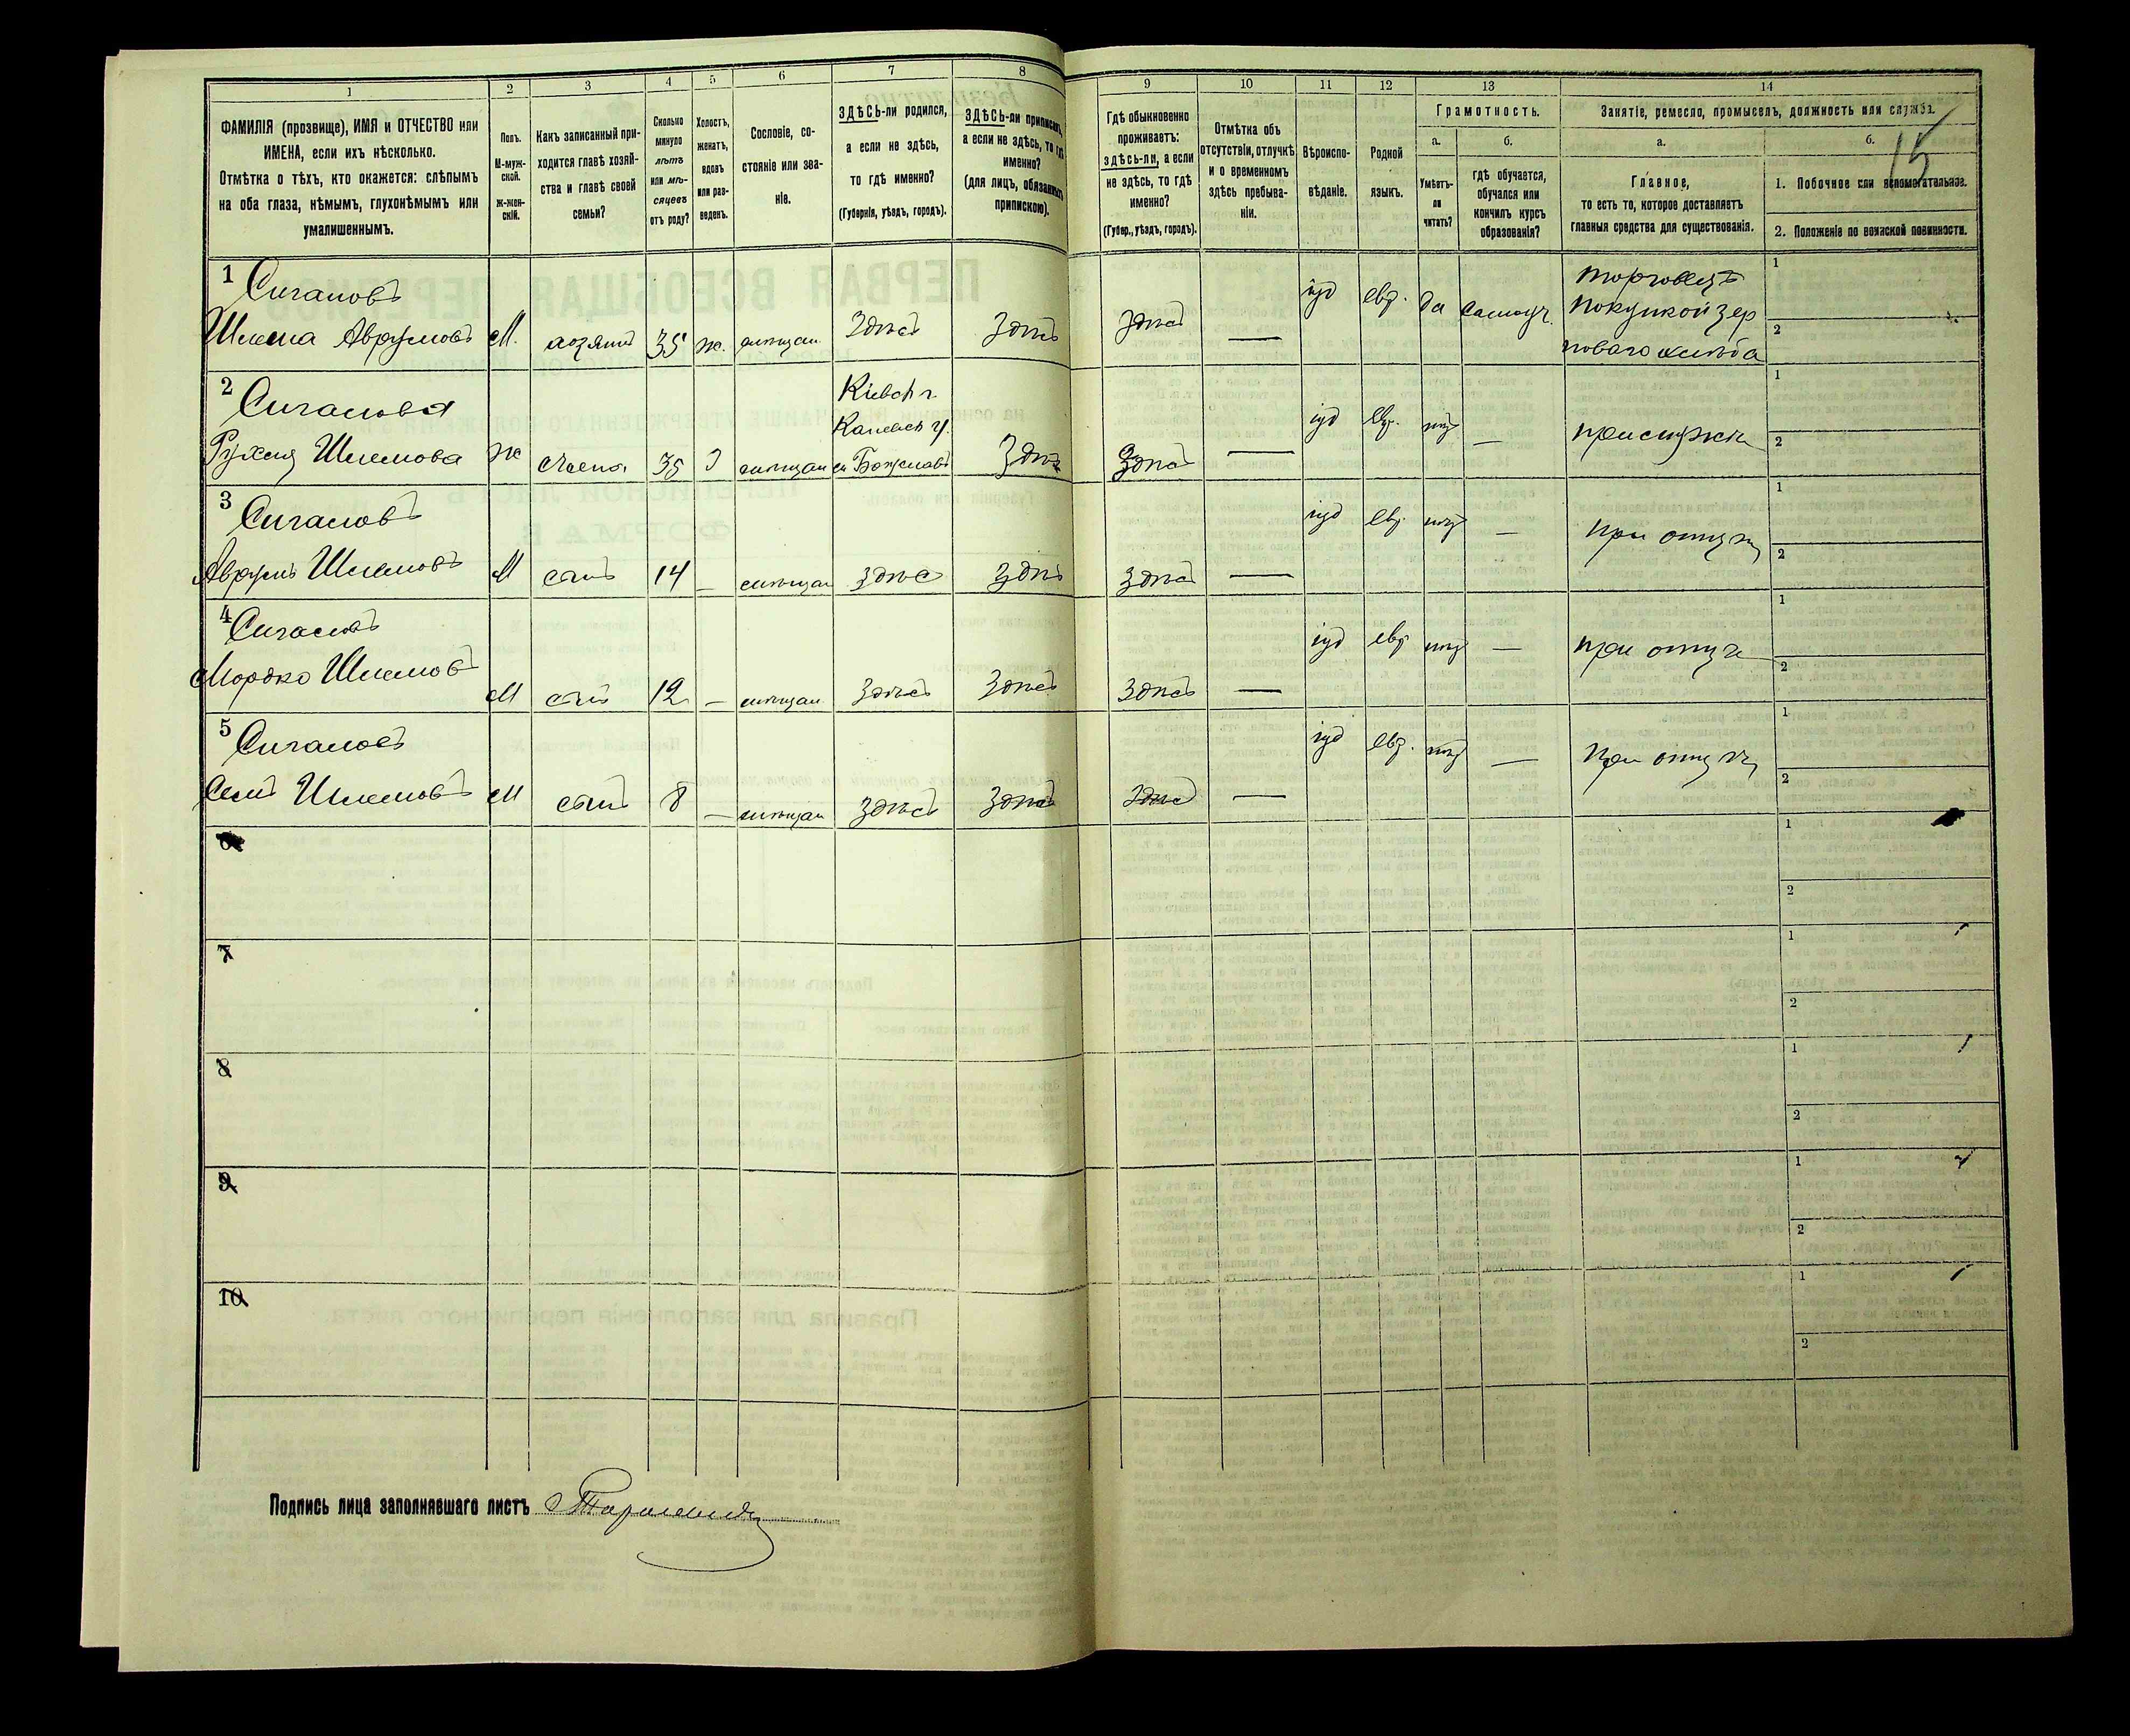 1 2 3 4 5 6 7 8 9 10 11 12 13 14
ФАМИЛІЯ (прозвище), ИМЯ и ОТЧЕСТВО или
ИМЕНА, если ихъ нѣсколько.
Отмѣтка о тѣхъ, кто окажется: слѣпымъ
на оба глаза, нѣмымъ, глухонѣмымъ или
умалишеннымъ.
Полъ.
М-муж-
ской.
Ж-жен-
скій.
Какъ записанный при-
ходится главѣ хозяй-
ства и главѣ своей
семьи?
Сколько
минуло
лѣтъ
или мѣ-
сяцевъ
отъ роду?
Холостъ,
женатъ,
вдовъ
или раз-
веденъ.
Сословіе, со-
стояніе или зва-
ніе.
ЗДѢСЬ-ли родился,
а если не здѣсь,
то гдѣ именно?
(Губернія, уѣздъ, городъ).
ЗДѢСЬ-ли приписанъ,
а если не здѣсь, то гдѣ
именно?
(для лицъ, обязанныхъ
припискою).
Гдѣ обыкновенно
проживаетъ:
здѣсь-ли, а если
не здѣсь, то гдѣ
именно?
(Губер., уѣздъ, городъ).
Отмѣтка объ
отсутствіи, отлучкѣ
и о временномъ
здѣсь пребыва-
ніи.
Вѣроиспо-
вѣданіе.
Родной
языкъ.
Грамотность.
а. б.
Умѣетъ-
ли
читать?
гдѣ обучается,
обучался или
кончилъ курсъ
образованія?
Занятіе, ремесло, промыселъ, должность или служба.
а. б.
15
Главное,
то есть то, которое доставляетъ
главныя средства для существованія.
1. Побочное или вспомогательное.
2. Положеніе по воинской повинности.
1 Сигаловъ
Шлема Аврумовъ М. хозяинъ 35 ж. мѣщан здѣсь здѣсь здѣсь — іуд евр. да самоуч.
торговецъ
покупкой зер
новаго хлѣба
1
2
2 Сигалова
Рухля Шлемова Ж жена 35 З мѣщан
Кіевск г.
Каневск у.
м Богуславъ
здѣсь здѣсь — іуд евр. нѣт — при мужѣ
1
2
3 Сигаловъ
Аврумъ Шлемовъ М сынъ 14 — мѣщан здѣсь здѣсь здѣсь — іуд евр. нѣт — при отцѣ
1
2
4 Сигаловъ
Мордко Шлемовъ М сынъ 12 — мѣщан здѣсь здѣсь здѣсь — іуд евр нѣт — при отцѣ
1
2
5 Сигаловъ
Шлемовъ М сынъ 8 — мѣщан здѣсь здѣсь здѣсь — іуд евр. нѣт — при отцѣ
1
2
6
1
2
7
1
2
8
1
2
9
1
2
10
1
2
Подпись лица заполнявшаго листъ